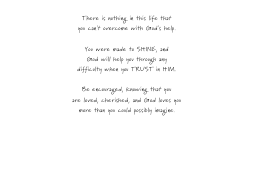 There is nothing in this life that
you can't overcome with God's help.
You were made to SHINE, and
God will help you through any
difficulty when you TRUST in HIM.
Be encouraged, knowing that you
are loved, cherished, and God loves you
more than you could possibly imagine.